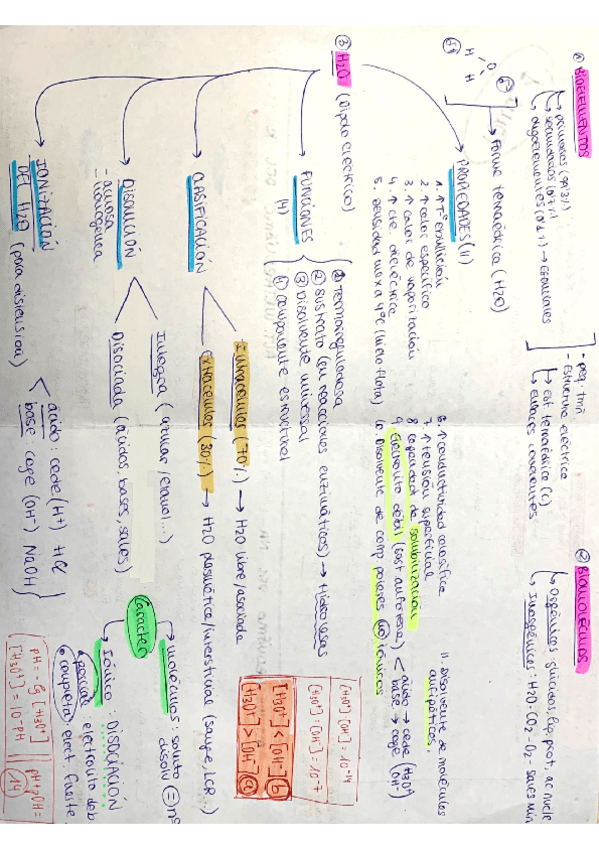 ① BIOELEMENTOS
↳ primarios (99'3%)
↳ secundarios (0'7%)
↳ oligoelementos (0'1%) → esenciales
- peq. tmñ
- Estructura eléctrica
↳ est tetraédrica (C)
↳ enlaces covalentes
② BIOMOLÉCULAS
↳ Orgánicos: glúcidos, lip, prot, ac nucle
↳ Inorgánicos: H2O - CO2 - O2 - sales min
③ H2O (Dipolo eléctrico)
H O H
Forma tetraédrica (H2O)
PROPIEDADES (11)
1. ↑ Tª ebullición
2. ↑ calor específico
3. ↑ calor de vaporización
4. ↑ cte. dieléctrica
5. densidad max a 4ºC (hielo flota)
6. ↑ conductividad calorífica
7. ↑ tensión superficial
8 Capacidad de solubilización
9. Electrolito débil (sust anfótera) < ácido → cede (H3O+)
base → coge (OH-)
10. Disolvente de comp polares no iónicos
11 Disolvente de moléculas anfipáticas
FUNCIONES (4)
① componente estructural
② Sustrato (en reacciones enzimáticas) → Hidrolasas
③ Disolvente universal
Termorreguladora
CLASIFICACIÓN
Intracelular (70%) → H2O libre/asociada
Extracelular (30%) → H2O plasmática/intersticial (sangre, LCR...)
DISOLUCIÓN
- acuosa
- homogénea
Íntegra (azúcar, etanol...)
Disociada (ácidos, bases, sales)
Carácter
moléculas: soluto
disolv = nº
Iónico: DISOCIACIÓN
parcial: electrolito deb
completa: elect. fuerte
IONIZACIÓN DEL H2O (para disolución)
ácido: cede (H+) HCl
base coge (OH-) NaOH
[H3O+] [OH-] = 10-14
[H3O+] = [OH-] = 10-7
[H3O+] < [OH-] b
[H3O+] > [OH-] a
pH = - lg [H3O+]
[H3O+] = 10-pH
pH + pOH = 14